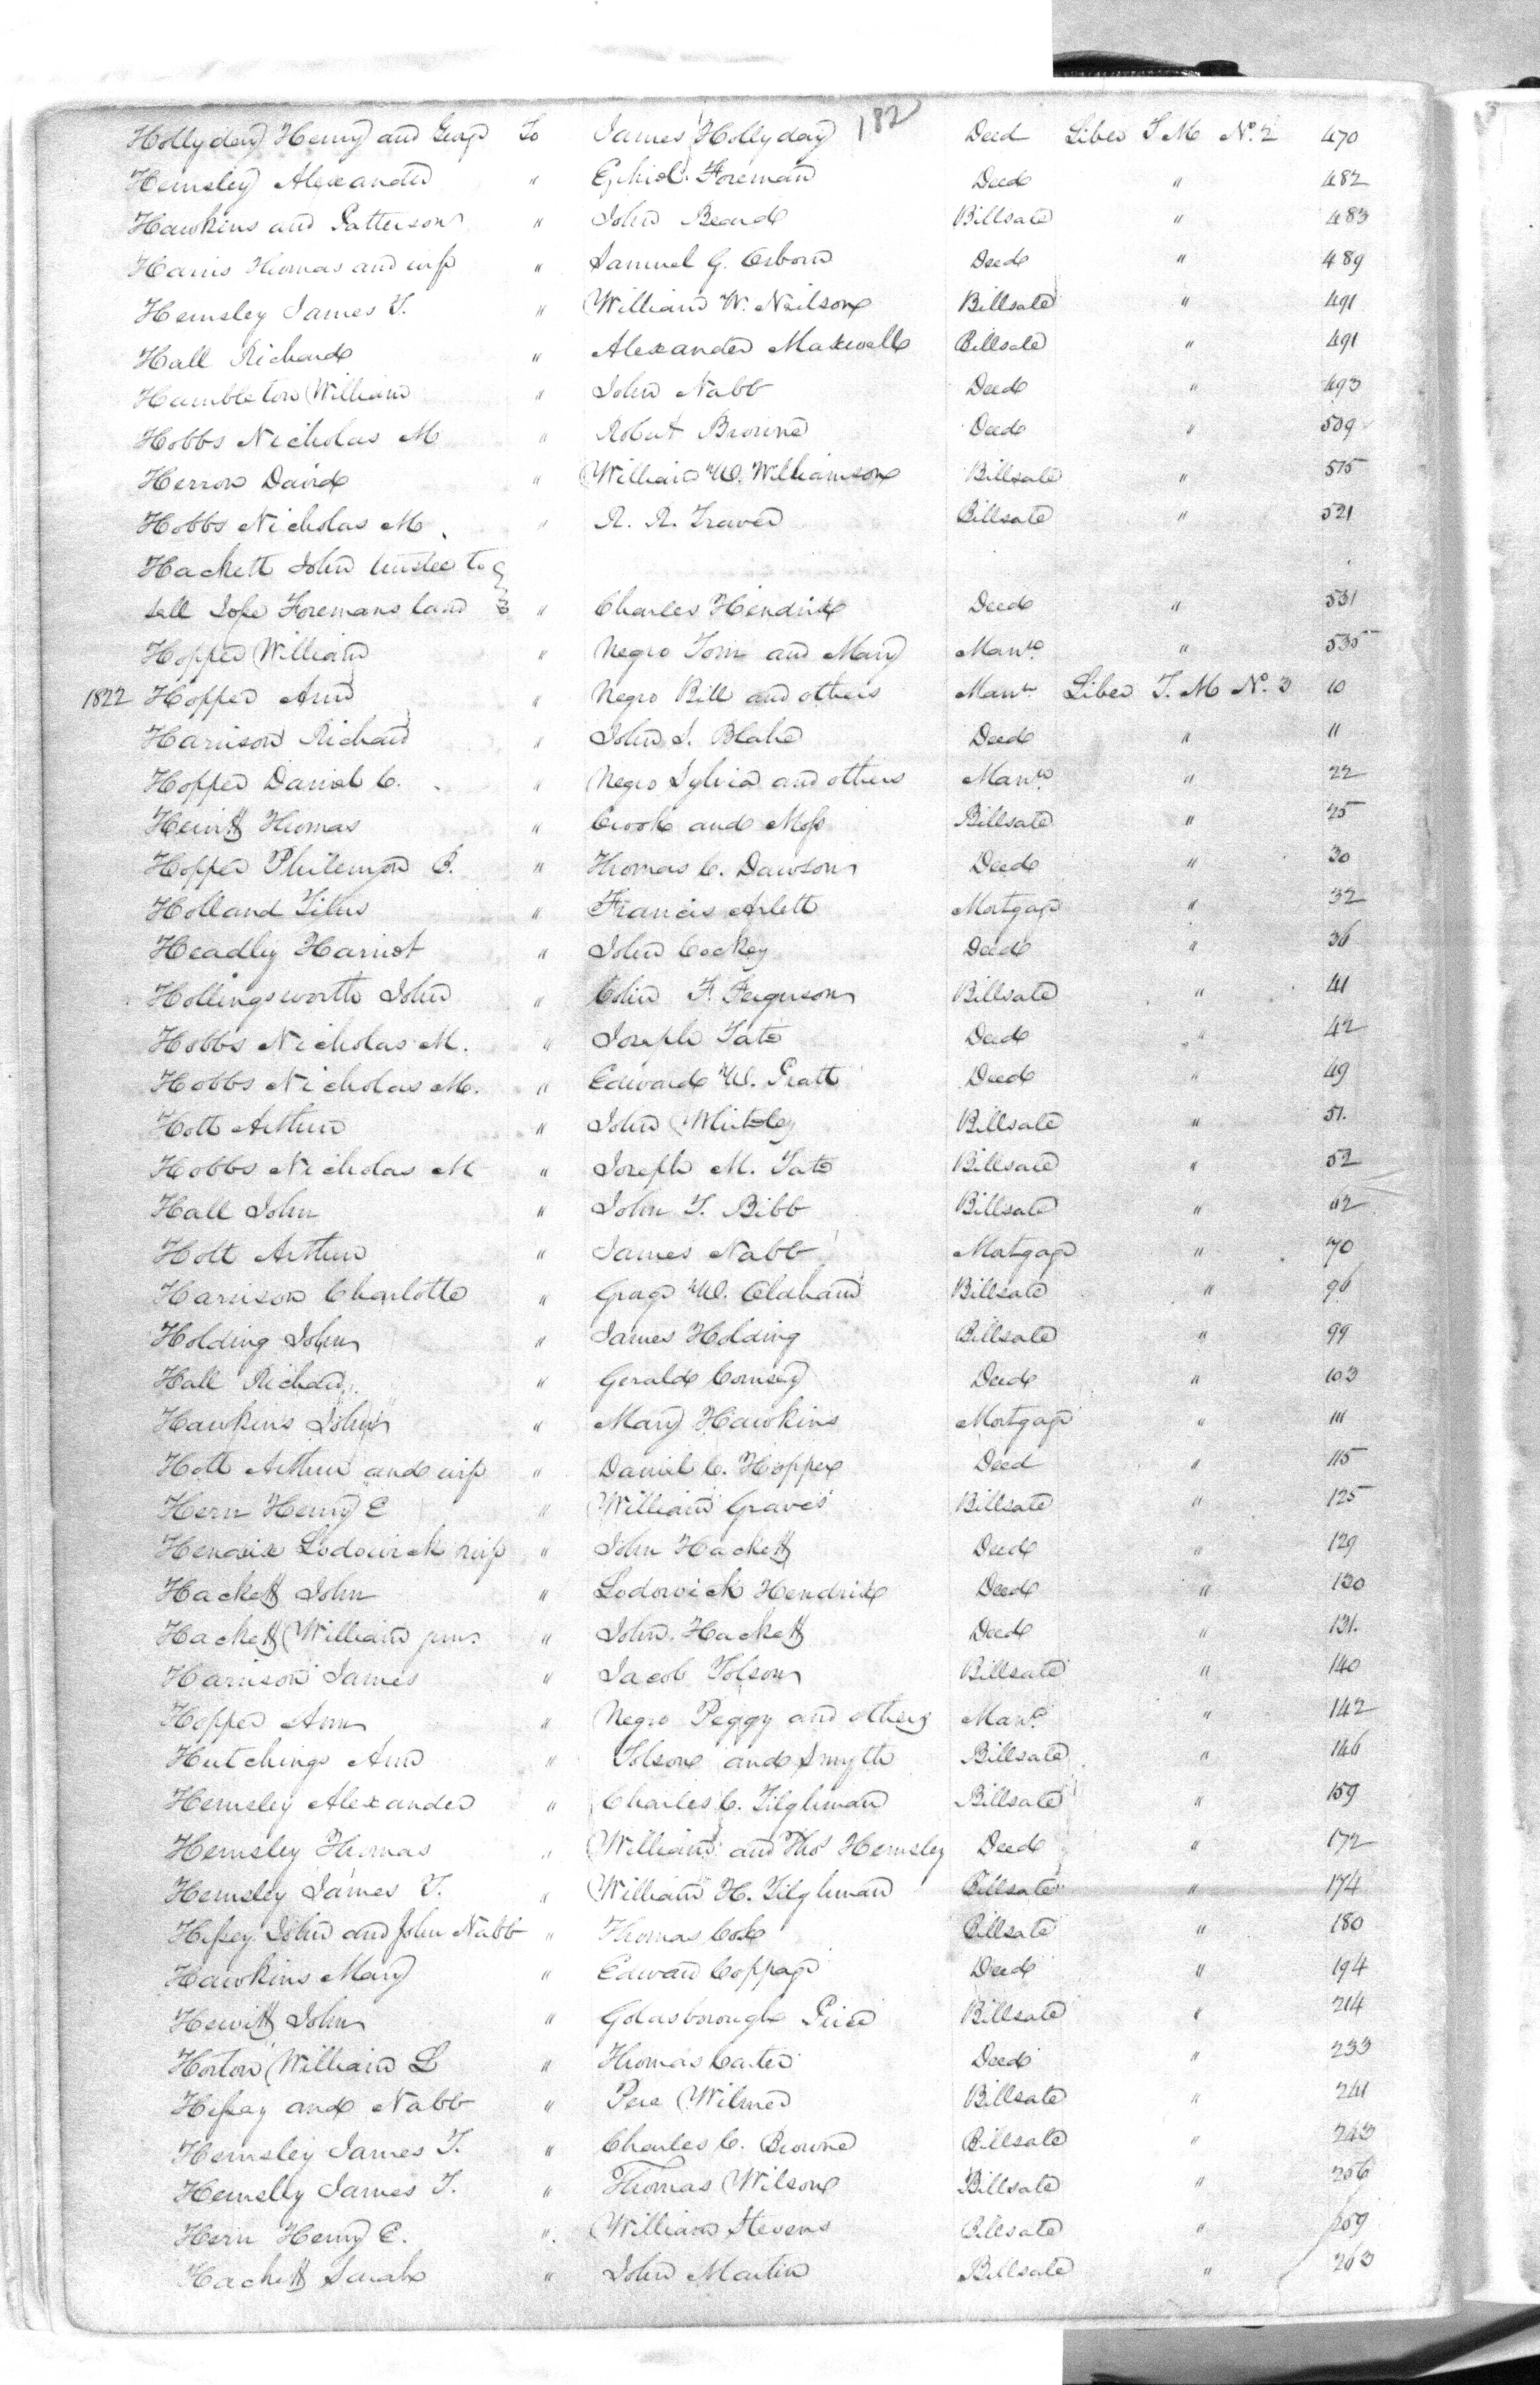 182
Hollyday Henry and George To James Hollyday Deed Liber T M No. 2 470
Hemsley Alexander " Foreman Deed " 482
Hawkins and Patterson " John Beard Billsale " 483
Harris Thomas and wife " Samuel G. Osborn Deed " 489
Hemsley James T. " William W. Neilson Billsale " 491
Hall Richard " Alexander Maxwell Billsale " 491
Hambleton William " John Nabb Deed " 493
Hobbs Nicholas M " Robert Browne Deed " 509
Herron David " William W. Williamson Billsale " 515
Hobbs Nicholas M. " R. R. Traver Billsale " 521
Hackett John trustee to
sell Foremans land " Charles Hendrix Deed " 531
Hopper William " Negro Tom and Mary Manro. " 535
1822 Hopper Ann " Negro Bill and others Manr. Liber T. M No. 3 10
Harrison Richard " John S. Blake Deed " 11
Hopper Daniel C. " Negro Sylvia and others Manro. " 22
Hewitt Thomas " Crook and Billsale " 25
Hopper Philemon B. " Thomas C. Dawson Deed " 30
Holland Titus " Francis Arlett Mortgage " 32
Headly Harriot " John Cockey Deed " 36
Hollingsworth John " Colin F. Ferguson Billsale " 41
Hobbs Nicholas M. " Joseph Tate Deed " 42
Hobbs Nicholas M. " Edward W. Pratt Deed " 49
Holt Arthur " John Whitely Billsale " 51.
Hobbs Nicholas M " Joseph M. Tate Billsale " 52
Hall John " John T. Bibb Billsale "
Holt Arthur " James Nabb Mortgage " 70
Harrison Charlotte " George W. Oldham Billsale " 96
Holding John " James Holding Billsale " 99
Hall Richard " Gerald Coursey Deed " 103
Hawkins John " Mary Hawkins Mortgage " 111
Holt Arthur and wife " Daniel C. Hopper Deed " 115
Hern Henry E " William Graves Billsale " 125
Hendrix Lodowick wife " John Hackett Deed " 129
Hackett John " Lodowick Hendrix Deed " 130
Hackett William junr. " John Hackett Deed " 131.
Harrison James " Jacob Tolson Billsale " 140
Hopper Ann " Negro Peggy and others Manro. " 142
Hutchings Ann " Tolson and Smyth Billsale " 146
Hemsley Alexander " Charles C. Tilghman Billsale " 159
Hemsley Thomas " William and Thos Hemsley Deed " 172
Hemsley James T. " William H. Tilghman Billsale " 174
Hessey John and John Nabb " Thomas Cox Billsale " 180
Hawkins Mary " Edward Coppage Deed " 194
Hewitt John " Goldsborough Price Billsale " 214
Horton William L " Thomas Carter Deed " 233
Hessey and Nabb " Pere Wilmer Billsale " 241
Hemsley James T. " Charles C. Browne Billsale " 243
Hemsley James T. " Thomas Wilson Billsale " 256
Hern Henry E. " William Stevens Billsale " 259
Hackett Sarah " John Martin Billsale " 263